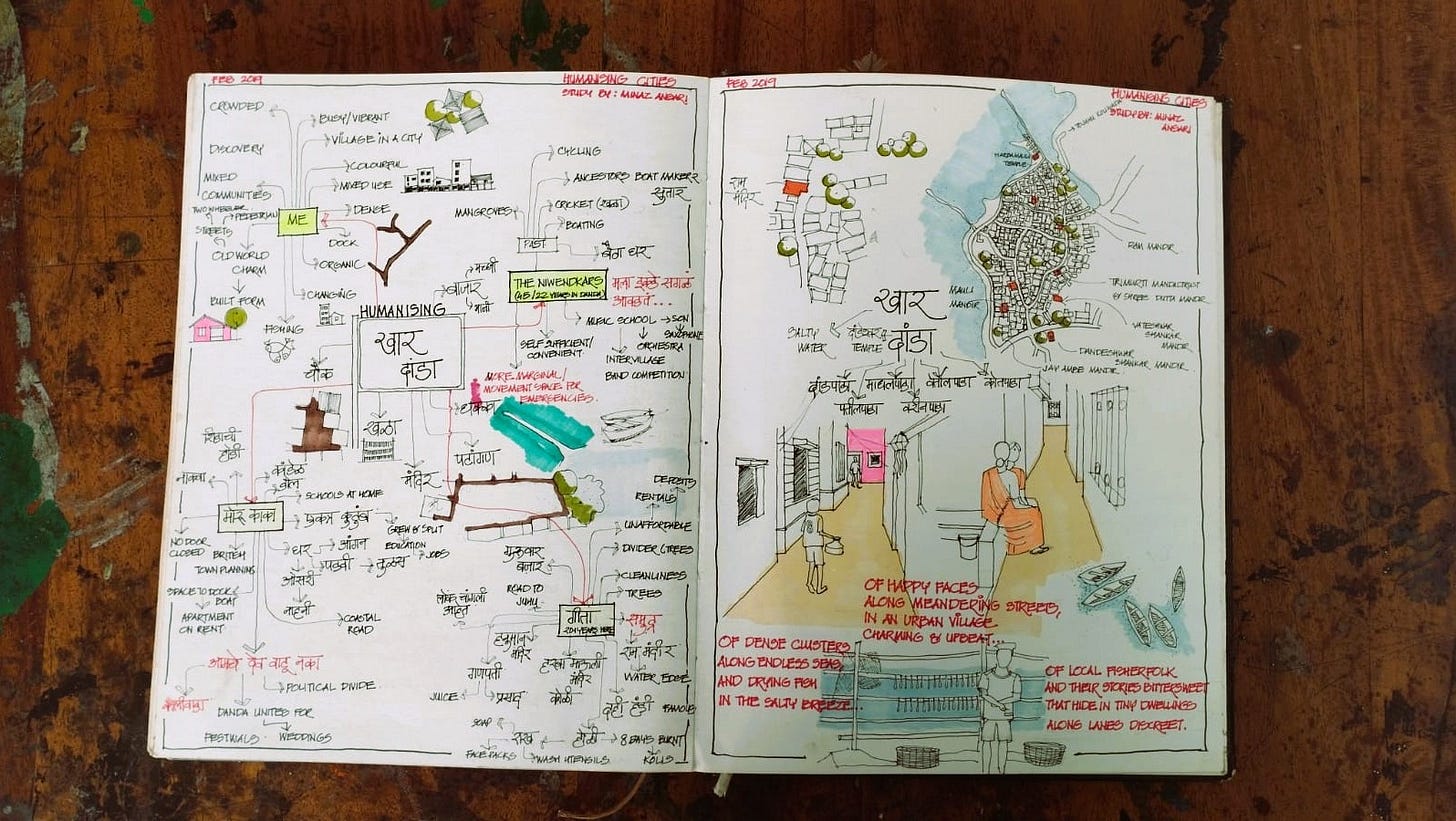 FEB 2019
HUMANISING CITIES
STUDY BY: MINAZ ANSARI
CROWDED
BUSY/VIBRANT
VILLAGE IN A CITY
DISCOVERY
COLOURFUL
MIXED USE
MIXED
COMMUNITIES
TWO WHEELER
PEDESTRIAN
STREETS
ME
DENSE
DOCK
OLD WORLD
CHARM
ORGANIC
BUILT FORM
CHANGING
FISHING
CYCLING
ANCESTORS BOAT MAKERS
सुतार
MANGROVES
CRICKET (खळा)
BOATING
PAST
THE NIWENDKARS
(45/22 YEARS IN DANDA)
मला इकडे सगळं
आवडते...
मच्छी
बाजार
MUSIC SCHOOL
SON
SAXOPHONE
SELF SUFFICIENT/
CONVENIENT
ORCHESTRA
INTERVILLAGE
BAND COMPETITION
HUMANISING
खार
दांडा
चौक
MORE MARGINAL/
MOVEMENT SPACE FOR
EMERGENCIES.
खळा
पटांगण
मंदिर
SCHOOLS AT HOME
एकत्र कुटुंब
GREW & SPLIT
EDUCATION
JOBS
घर
आंगन
पडवी
तुळस
ओसरी
NO DOOR
CLOSED
BRITISH
TOWN PLANNING
SPACE TO DOCK
BOAT
APARTMENT
ON RENT
COASTAL
ROAD
POLITICAL DIVIDE
DANDA UNITES FOR
FESTIVALS
WEDDINGS
DEPOSITS
RENTALS
UNAFFORDABLE
DIVIDER/TREES
CLEANLINESS
TREES
ROAD TO
JUHU
गीता
समुद्र
हनुमान
मंदिर
राम मंदिर
WATER EDGE
गणपती
JUICE
प्रसाद
कोळी
दही हंडी
FAMOUS
SOAP
राख
होळी
8 DAYS BURNT
FACEPACKS
WASH UTENSILS
KOLIS
FEB 2019
HUMANISING CITIES
STUDY BY: MINAZ
ANSARI
TEMPLE
राम
मंदिर
RAM MANDIR
MAULI
MANDIR
खार
दांडा
SALTY
WATER
TEMPLE
TRIMURTI
& SHREE DUTTA MANDIR
VATESHWAR
SHANKAR
MANDIR
DANDESHWAR
SHANKAR MANDIR
JAY AMBE MANDIR
दांडपाडा
पाटीलपाडा
OF HAPPY FACES
ALONG MEANDERING STREETS,
IN AN URBAN VILLAGE
CHARMING & UPBEAT...
OF DENSE CLUSTERS
ALONG ENDLESS SEAS,
AND DRYING FISH
IN THE SALTY BREEZE...
OF LOCAL FISHERFOLK
AND THEIR STORIES BITTERSWEET
THAT HIDE IN TINY DWELLINGS
ALONG LANES DISCREET.